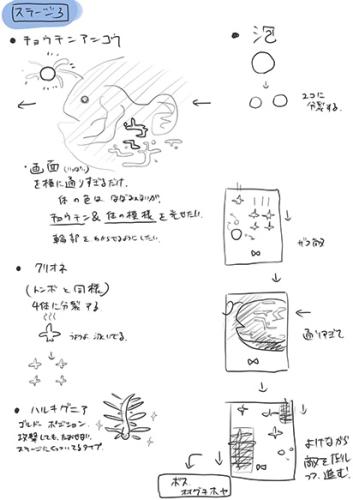 ステージ3
• チョウチンアンコウ
• 泡
2コに
分裂する。
・画面(いっぱい)
を横に通りすぎるだけ。
体の色は
チョウチン&体の模様を見せたい。
輪郭をわからせるようにしたい。
• クリオネ
(トンボと同様)
4体に分裂する
うようよ泳いでる。
通りすぎて
• ハルキゲニア
ゴールドポジション
攻撃しても
ステージに タイプ
よけながら
敵を
進む!
ボス
オオグチボヤ